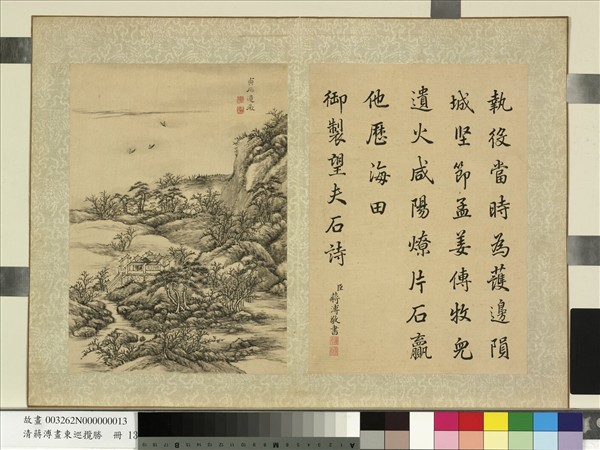 執役當時為護邊隕
城堅節孟姜傳牧兒
遺火咸陽燎片石贏
他歷海田
御製望夫石詩
臣蔣溥敬書
貞石邊
故畫 003262N000000013
清蔣溥畫東巡攬勝　冊 13